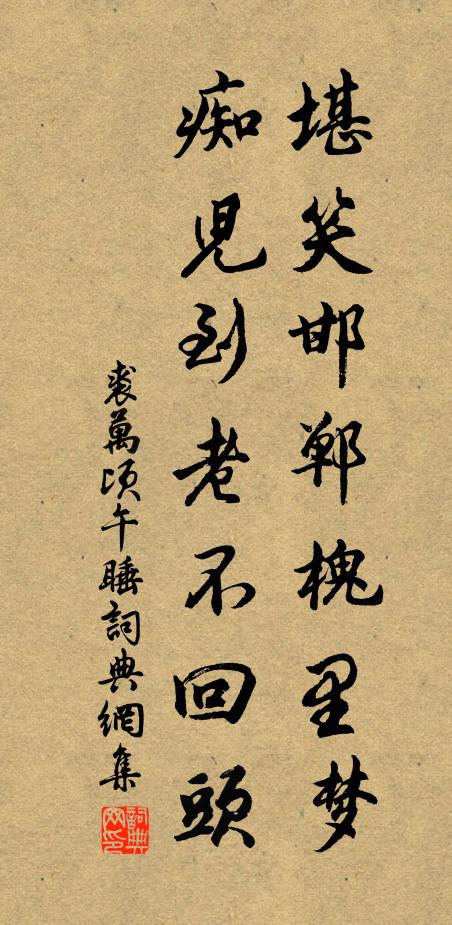 堪笑邯郸槐里梦
痴児到老不回頭
裘萬頃午睡詞典網集
詞典网印